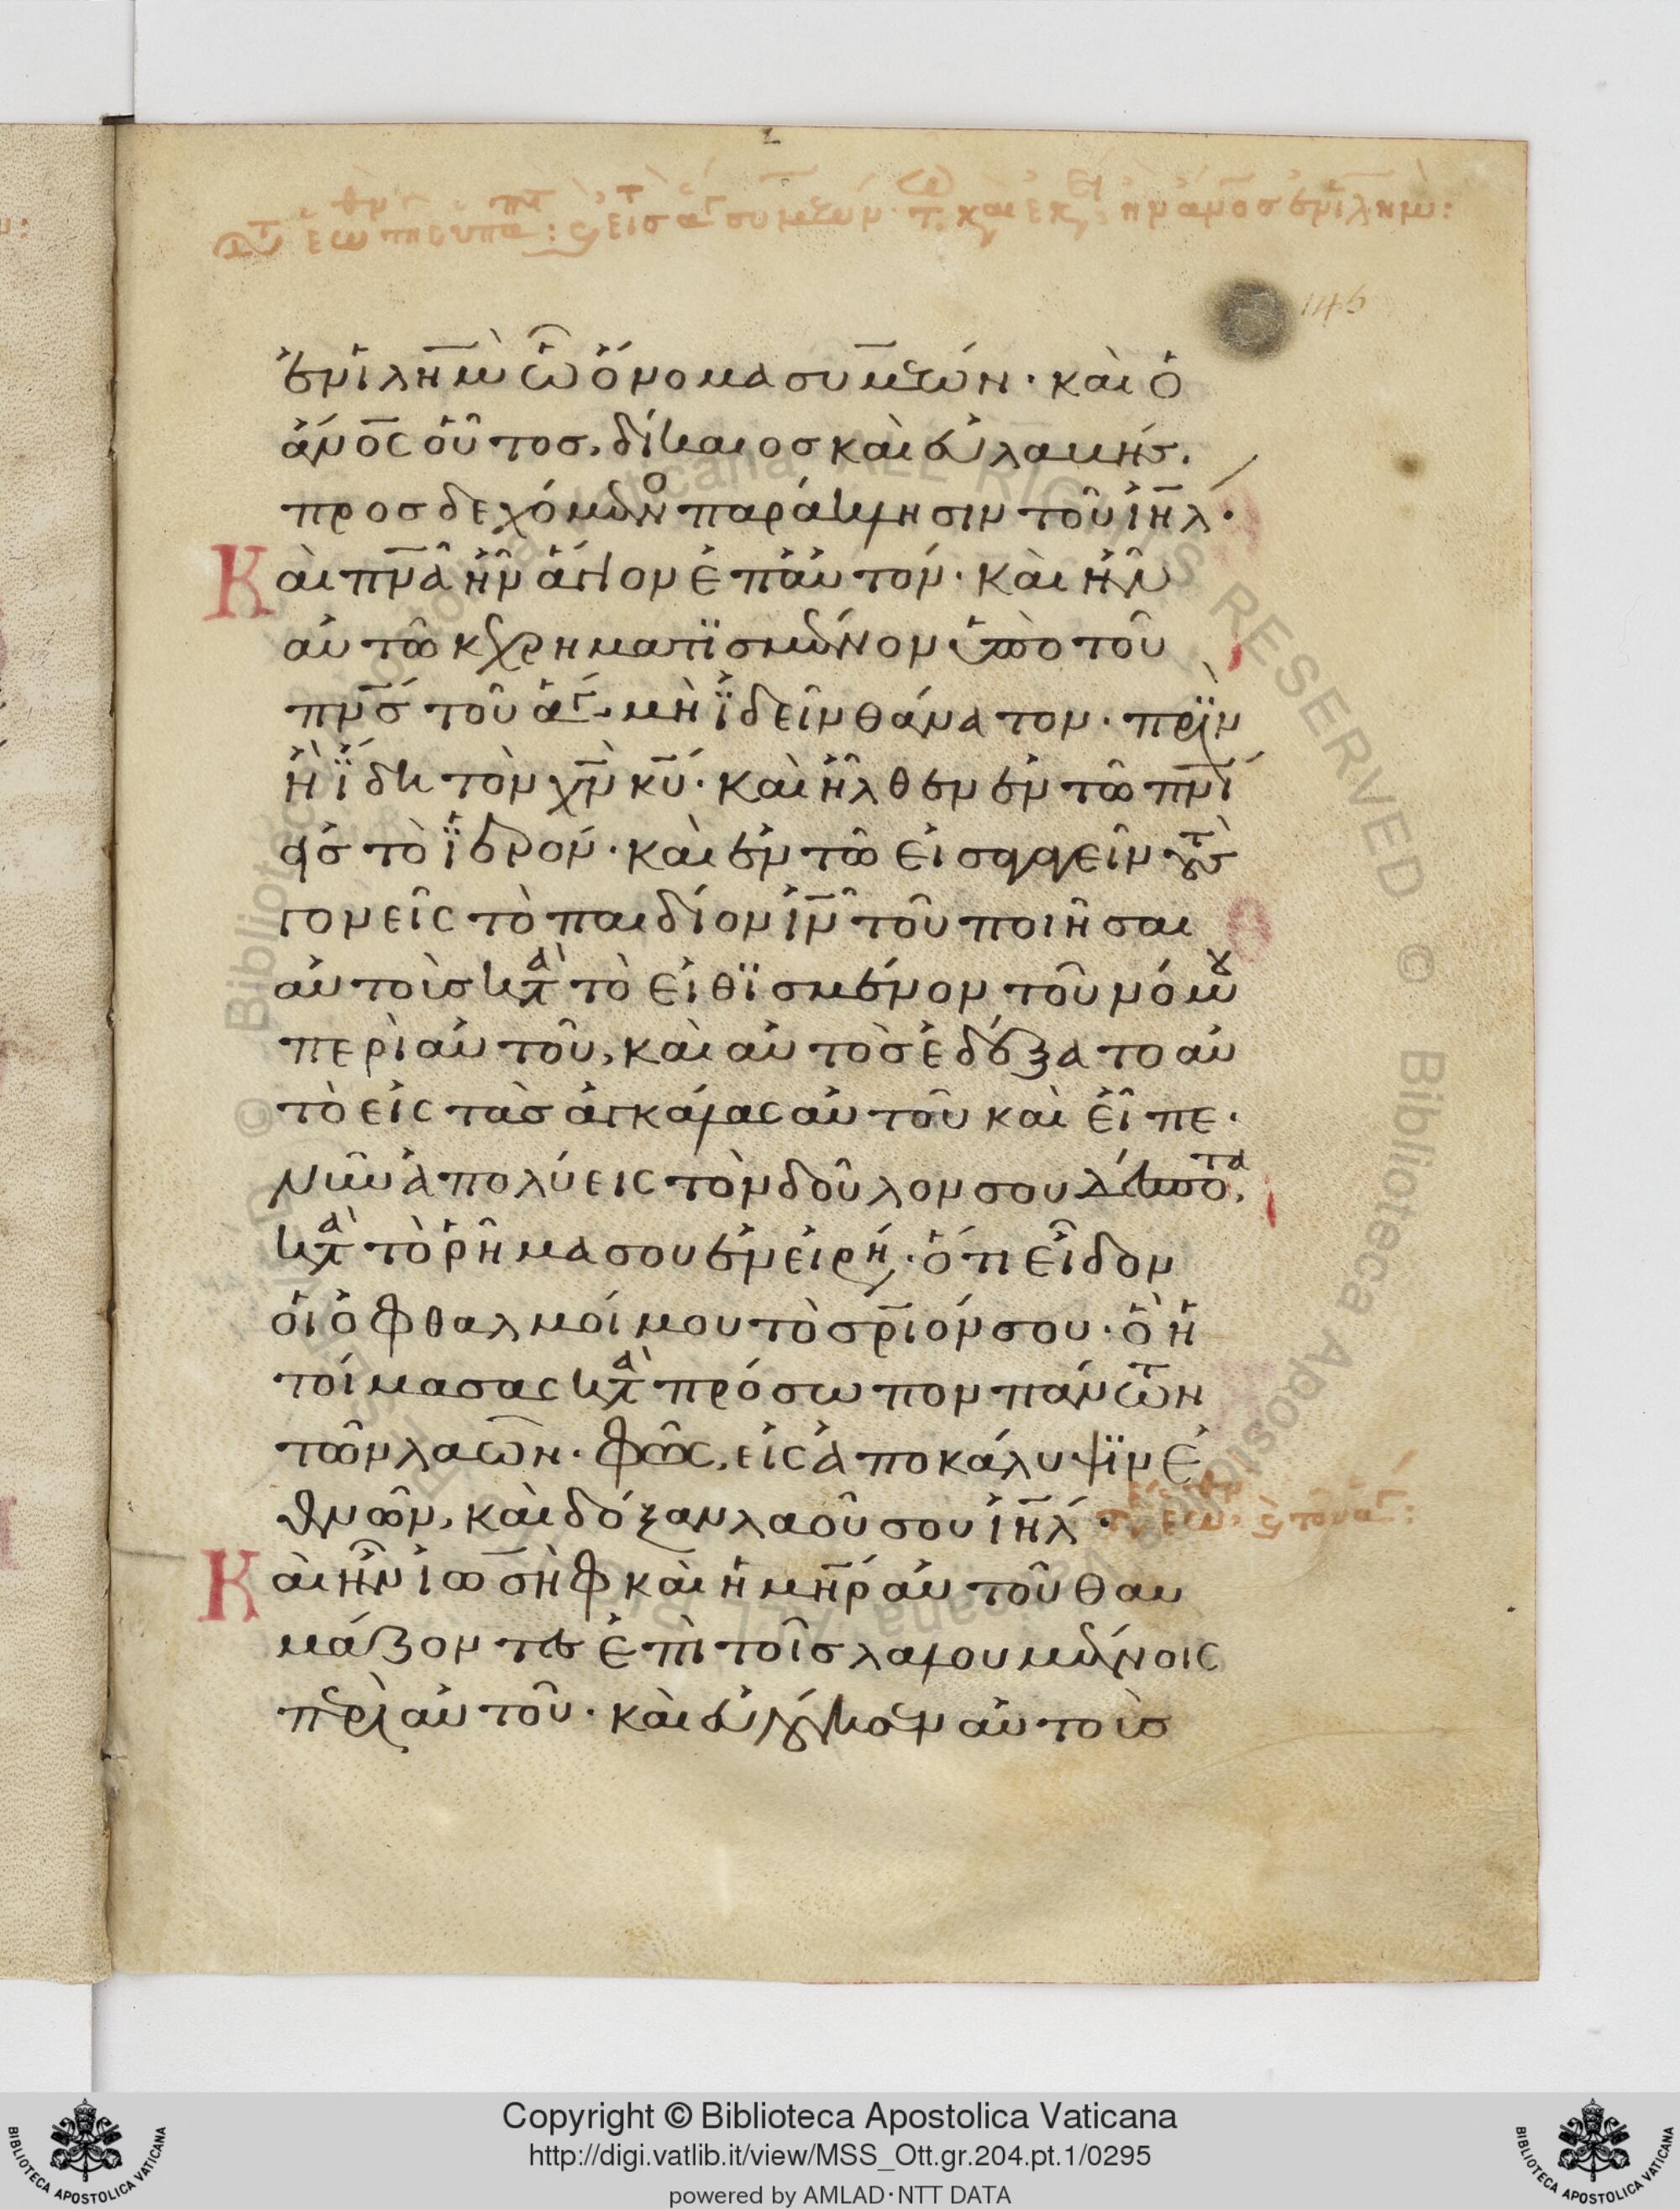 146
ἐν ἰλῆμ ὧ ὄνομα συμεών· καὶ ὁ
ἄνος οὗτος, δίκαιος καὶ εὐλαβής,
προσδεχόμενος παράκλησιν τοῦ ἰηλ·
Καὶ πνα ἦν ἅγιον ἐπ' αὐτόν· καὶ ἦν
αὐτῶ κεχρηματϊσμένον ὑπὸ τοῦ
πνς τοῦ ἁγ. μὴ ἰδεῖν θάνατον· πρὶν
ἢ ἴδη τὸν χν κυ· καὶ ἦλθεν ἐν τῶ πνι
εἰς τὸ ἱερόν· καὶ ἐν τῶ εἰσαγαγεῖν τοὺς
γονεῖς τὸ παιδίον ιν τοῦ ποιῆσαι
αὐτοὺς κατὰ τὸ εἰθϊσμένον τοῦ νόμου
περὶ αὐτοῦ, καὶ αὐτὸς ἐδέξατο αὐ
τὸ εἰς τὰς ἀγκάλας αὐτοῦ καὶ εἶπε·
Νῦν ἀπολύεις τὸν δοῦλον σου δέσποτα,
κατὰ τὸ ῥῆμα σου ἐν εἰρή· ὅτι εἶδον
οἱ ὀφθαλμοί μου τὸ σριόν σου· ὃ ἡ
τοίμασας κατὰ πρόσωπον πάντων
τῶν λαῶν· φῶς, εἰς ἀποκάλυψϊν ἐ
θνῶν, καὶ δόξαν λαοῦ σου ἰηλ·
Καὶ ἦν ἰωσὴφ καὶ ἡ μηρ αὐτοῦ θαυ
μάζοντες ἐπὶ τοῖς λαλουμένοις
περὶ αὐτοῦ· καὶ εὐλόγησεν αὐτοὺς
Copyright © Biblioteca Apostolica Vaticana
http://digi.vatlib.it/view/MSS_Ott.gr.204.pt.1/0295
powered by AMLAD·NTT DATA
BIBLIOTECA APOSTOLICA VATICANA
BIBLIOTECA APOSTOLICA VATICANA